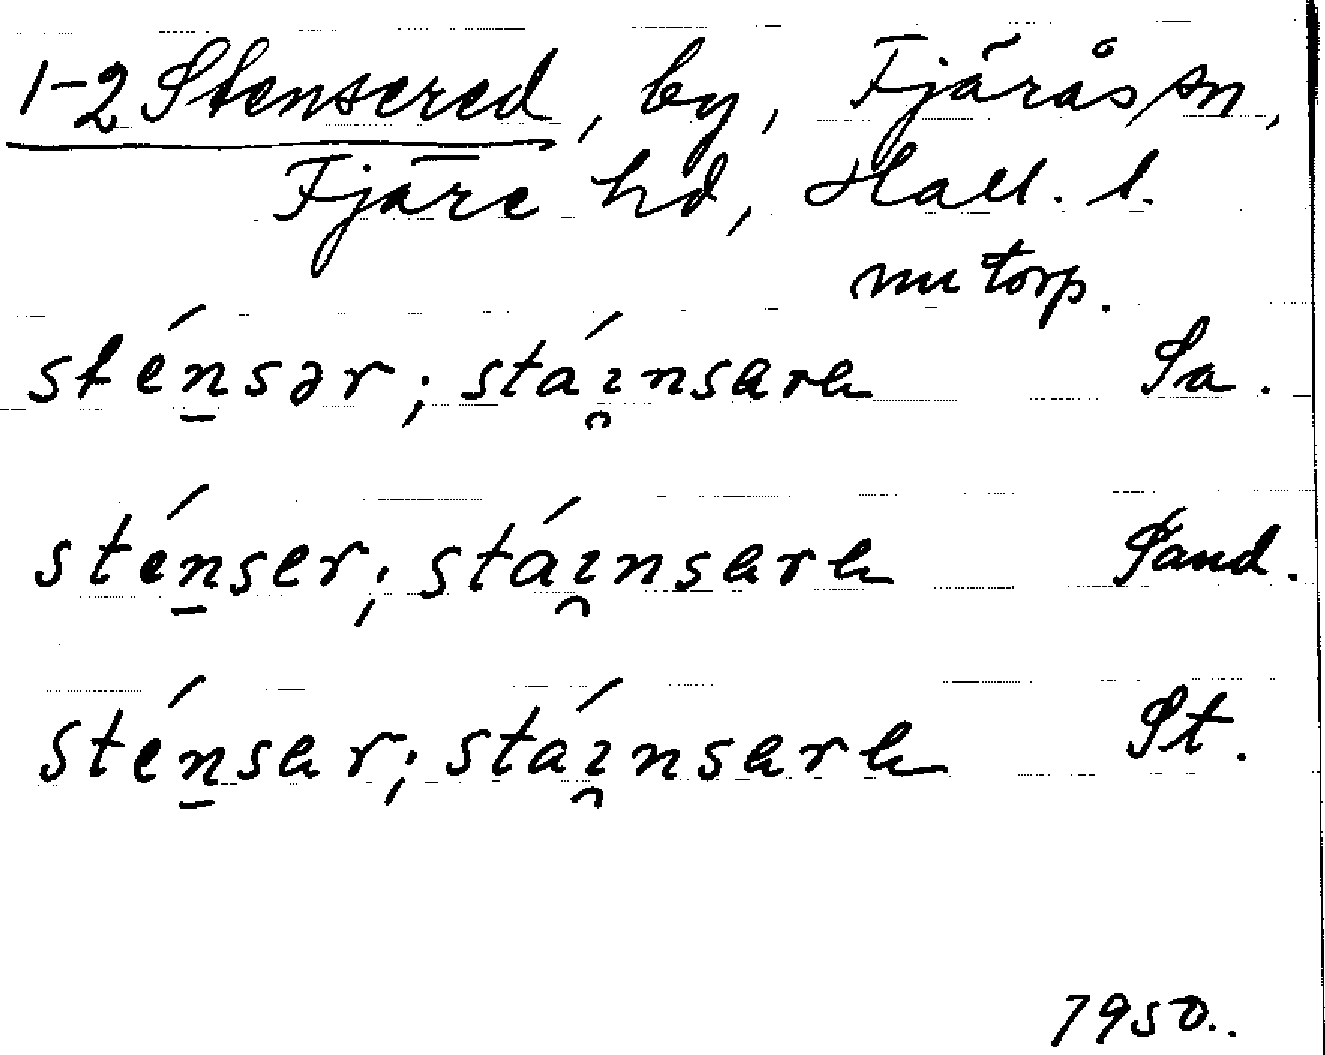 1-2 Stensered, by, Fjärås sn,
Fjäre hd, Hall. l.
nu torp.
sténsər; stáınsara Sa.
sténser; stáınsara Sand.
sténsar; stáınsara St.
1950.